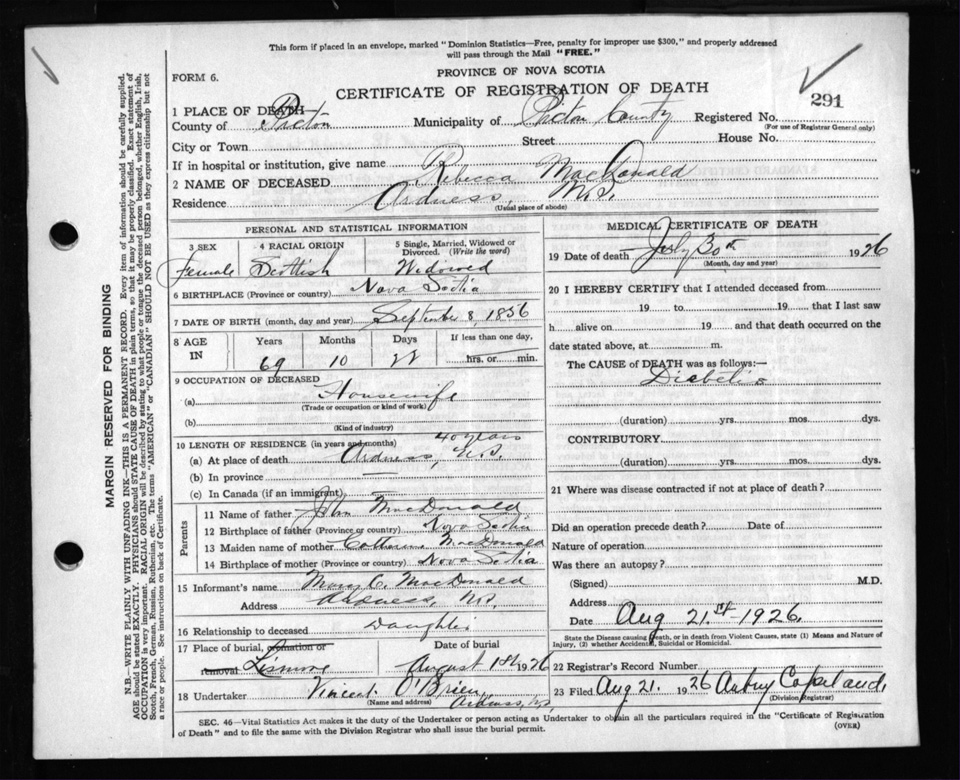 This form if placed in an envelope, marked "Dominion Statistics—Free, penalty for improper use $300," and properly addressed
will pass through the Mail "FREE."
FORM 6.
PROVINCE OF NOVA SCOTIA
CERTIFICATE OF REGISTRATION OF DEATH
291
1 PLACE OF DEATH
County of Pictou Municipality of Pictou County Registered No.
(For use of Registrar General only)
City or Town Street House No.
If in hospital or institution, give name
2 NAME OF DECEASED Rebecca MacDonald
Residence Ardness, N.S.
(Usual place of abode)
PERSONAL AND STATISTICAL INFORMATION
3 SEX 4 RACIAL ORIGIN 5 Single, Married, Widowed or Divorced. (Write the word)
Female Scottish Widowed
6 BIRTHPLACE (Province or country) Nova Scotia
7 DATE OF BIRTH (month, day and year) September 8, 1856
8 AGE IN Years Months Days If less than one day,
69 10 22 hrs. or min.
9 OCCUPATION OF DECEASED
(a) Housewife
(Trade or occupation or kind of work)
(b)
(Kind of industry)
10 LENGTH OF RESIDENCE (in years and months) 40 years
(a) At place of death Ardness, N.S.
(b) In province
(c) In Canada (if an immigrant)
Parents
11 Name of father John MacDonald
12 Birthplace of father (Province or country) Nova Scotia
13 Maiden name of mother Catherine MacDonald
14 Birthplace of mother (Province or country) Nova Scotia
15 Informant's name Mary C. MacDonald
Address Ardness, N.S.
16 Relationship to deceased Daughter
17 Place of burial, cremation or removal Lismore Date of burial August 1st 1926
18 Undertaker Vincent O'Brien, Ardness, N.S.
(Name and address)
MEDICAL CERTIFICATE OF DEATH
19 Date of death July 30th 1926
(Month, day and year)
20 I HEREBY CERTIFY that I attended deceased from
19 to 19 that I last saw
h alive on 19 and that death occurred on the
date stated above, at m.
The CAUSE of DEATH was as follows:—
Diabetis
(duration) yrs. mos. dys.
CONTRIBUTORY
(duration) yrs. mos. dys.
21 Where was disease contracted if not at place of death?
Did an operation precede death? Date of
Nature of operation
Was there an autopsy?
(Signed) M.D.
Address
Date Aug 21st 1926.
State the Disease causing death, or in death from Violent Causes, state (1) Means and Nature of
Injury, (2) whether Accidental, Suicidal or Homicidal.
22 Registrar's Record Number
23 Filed Aug 21. 1926 Aubry Copeland.
(Division Registrar)
SEC. 46—Vital Statistics Act makes it the duty of the Undertaker or person acting as Undertaker to obtain all the particulars required in the "Certificate of Registration
of Death" and to file the same with the Division Registrar who shall issue the burial permit.
(OVER)
MARGIN RESERVED FOR BINDING
N.B.—WRITE PLAINLY WITH UNFADING INK—THIS IS A PERMANENT RECORD. Every item of information should be carefully supplied.
AGE should be stated EXACTLY. PHYSICIANS should STATE CAUSE OF DEATH in plain terms, so that it may be properly classified. Exact statement of
OCCUPATION is very important. RACIAL ORIGIN will be described by stating to what people or tongue the deceased person belonged, whether English, Irish,
Scotch, French, German, Russian, Ruthenian, etc. The terms "AMERICAN" or "CANADIAN" SHOULD NOT BE USED as they express citizenship but not
a race or people. See instructions on back of Certificate.